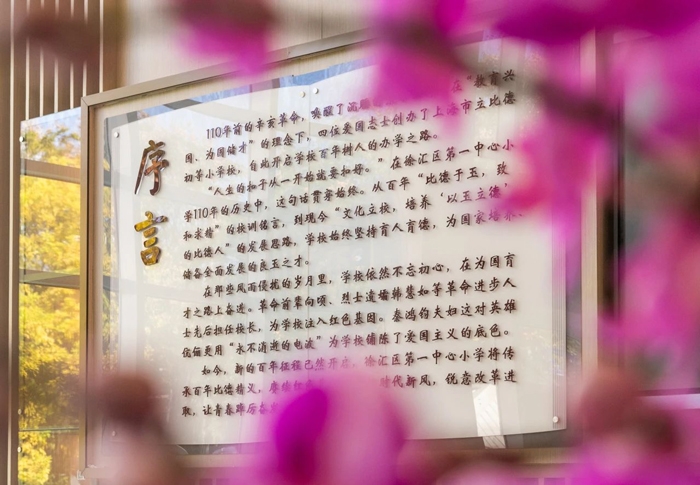 序言
110年前的辛亥革命，唤醒了沉睡 在“教育兴
国、为国储才”的理念下，四位爱国志士创办了上海市立比德
初等小学校，自此开启学校百年树人的办学之路。
“人生的扣子从一开始就要扣好。”在徐汇区第一中心小
学110年的历史中，这句话贯穿始终。从百年“比德于玉，玫
和求精”的校训储言，到现今“文化立校，培养‘以玉立德’，
的比德人”的发展思路，学校始终坚持育人育德，为国家培养
储备全面发展的良玉之才。
在那些风雨侵扰的岁月里，学校依然不忘初心，在为国育
才之路上奋进。革命前辈向顷、烈士遗孀韩慧如等革命进步人
士先后担任校长，为学校注入红色基因。秦鸿钧夫妇这对英雄
伉俪更用“永不消逝的电波”为学校铺陈了爱国主义的底色。
如今，新的百年征程已然开启。徐汇区第一中心小学将传
承百年比德精义，赓续红 时代新风，锐意改革进
取，让青春蹄厉奋